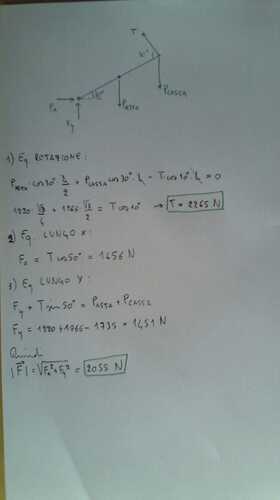 T
40°
30°
Fx
Fy
PASTA
PCASSA
1) Eq ROTAZIONE:
PASTA cos30° L/2 + PCASSA cos30° L - T cos10° L = 0
1220 · √3/4 + 1766 · √3/2 = T cos10° → T = 2265 N
2) Eq. LUNGO X:
Fx = T cos50° = 1456 N
3) Eq LUNGO Y:
Fy + T sin50° = PASTA + PCASSA
Fy = 1220 + 1766 - 1735 = 1451 N
Quindi
|F| = √Fx² + Fy² = 2055 N